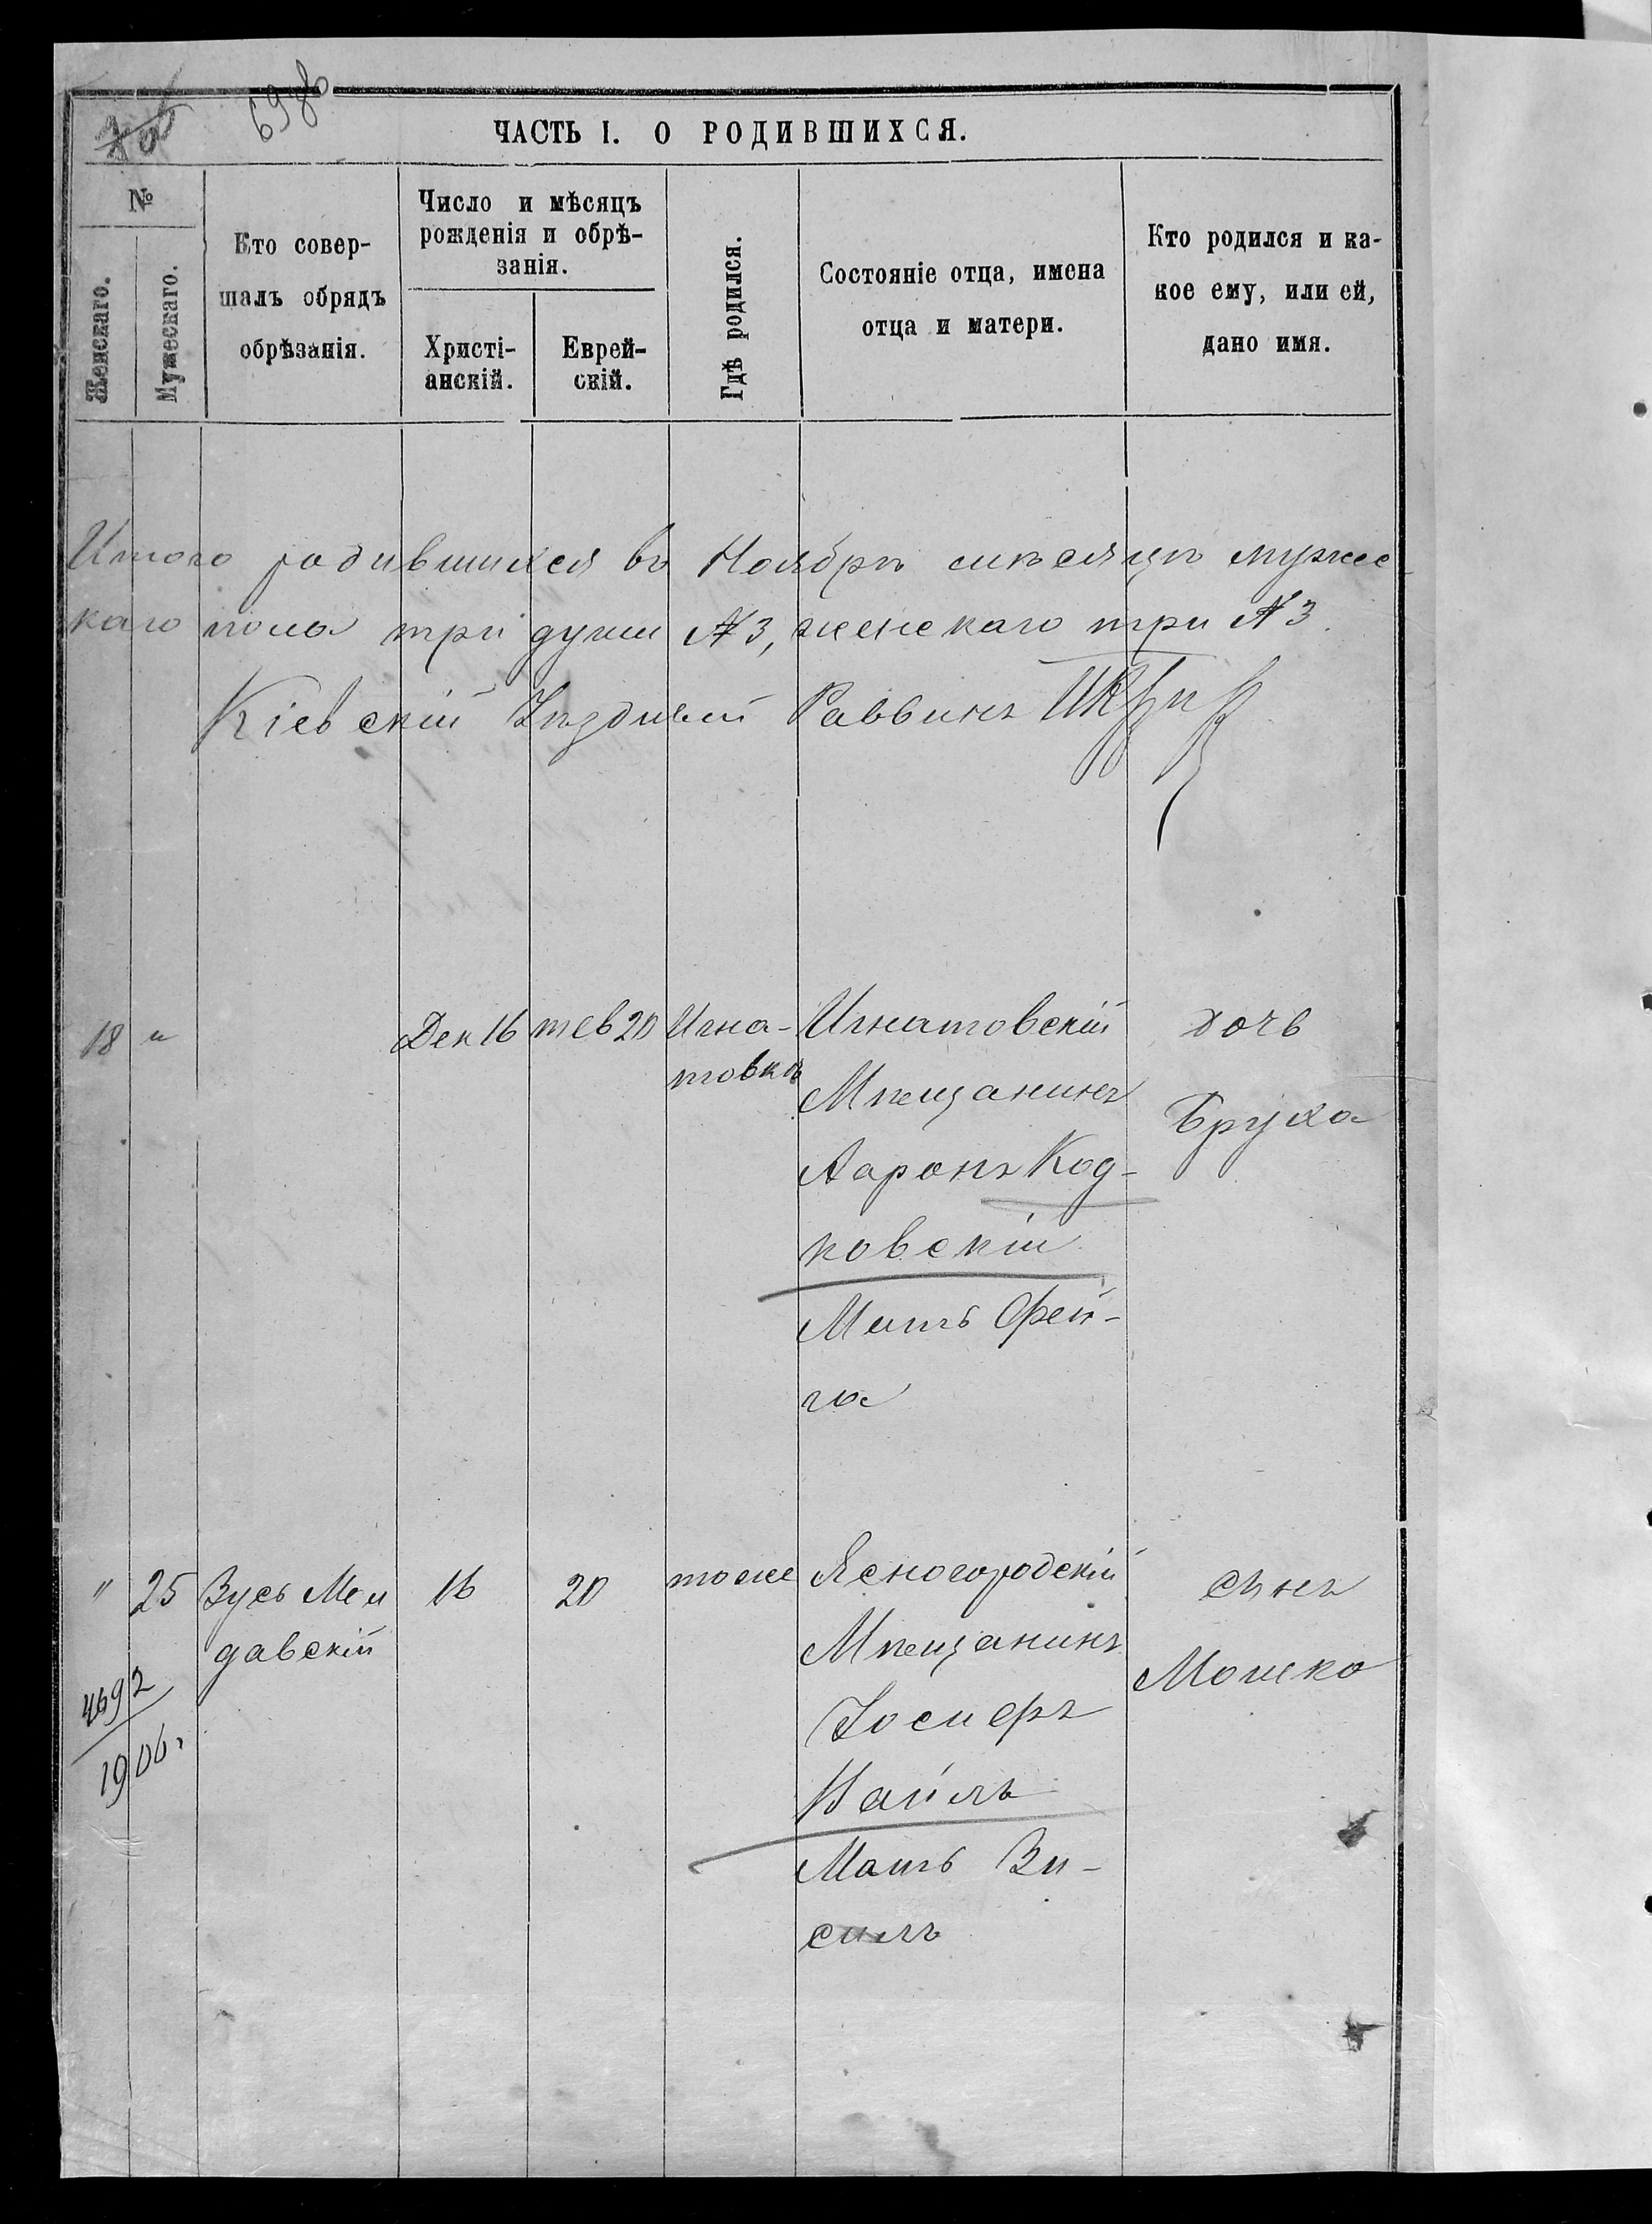 698
ЧАСТЬ I. О РОДИВШИХСЯ.
№
Женскаго.
Мужескаго.
Кто совер-
шалъ обрядъ
обрѣзанія.
Число и мѣсяцъ
рожденія и обрѣ-
занія.
Христі-
анскій.
Еврей-
скій.
Гдѣ родился.
Состояніе отца, имена
отца и матери.
Кто родился и ка-
кое ему, или ей,
дано имя.
Итого родившихся въ Ноябрѣ мѣсяцѣ мужес
каго пола три души № 3, женскаго три № 3.
Кіевскій Уѣздный Раввинъ
18 "
Дек 16
тев 20
Игна-
товкѣ
Игнатовскій
Мѣщанинъ
Ааронъ Код-
ковскій
Мать Фей-
га
дочь
Бруха
" 25
4692
1906.
Зусь Мол
давскій
16
20
тоже
Ясногородскій
Мѣщанинъ
Іосифъ
Вайль
Мать Зи-
силь
сынъ
Мошко